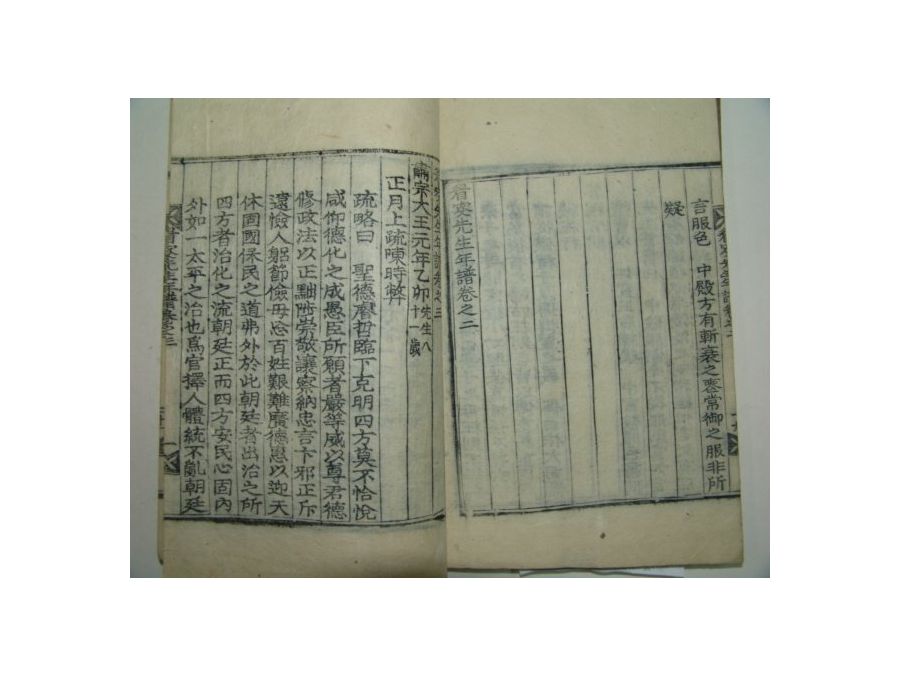 言服色 中殿方有斬衰之喪常御之服非所
疑
眉叟先生年譜卷之二
眉叟先生年譜卷之三
肅宗大王元年乙卯先生八十一歲
正月上疏陳時弊
疏略曰 聖德睿哲臨下克明四方莫不恰悅
咸仰德化之成愚臣所願者嚴等威以尊君德
修政法以正黜陟崇敬讓察納忠言卞邪正斥
遠憸人躬節儉毋忘百姓艱難廣德恩以迎天
休固國保民之道弗外於此朝廷者出治之所
四方者治化之流朝廷正而四方安民心固內
外如一太平之治也爲官擇人體統不亂朝廷